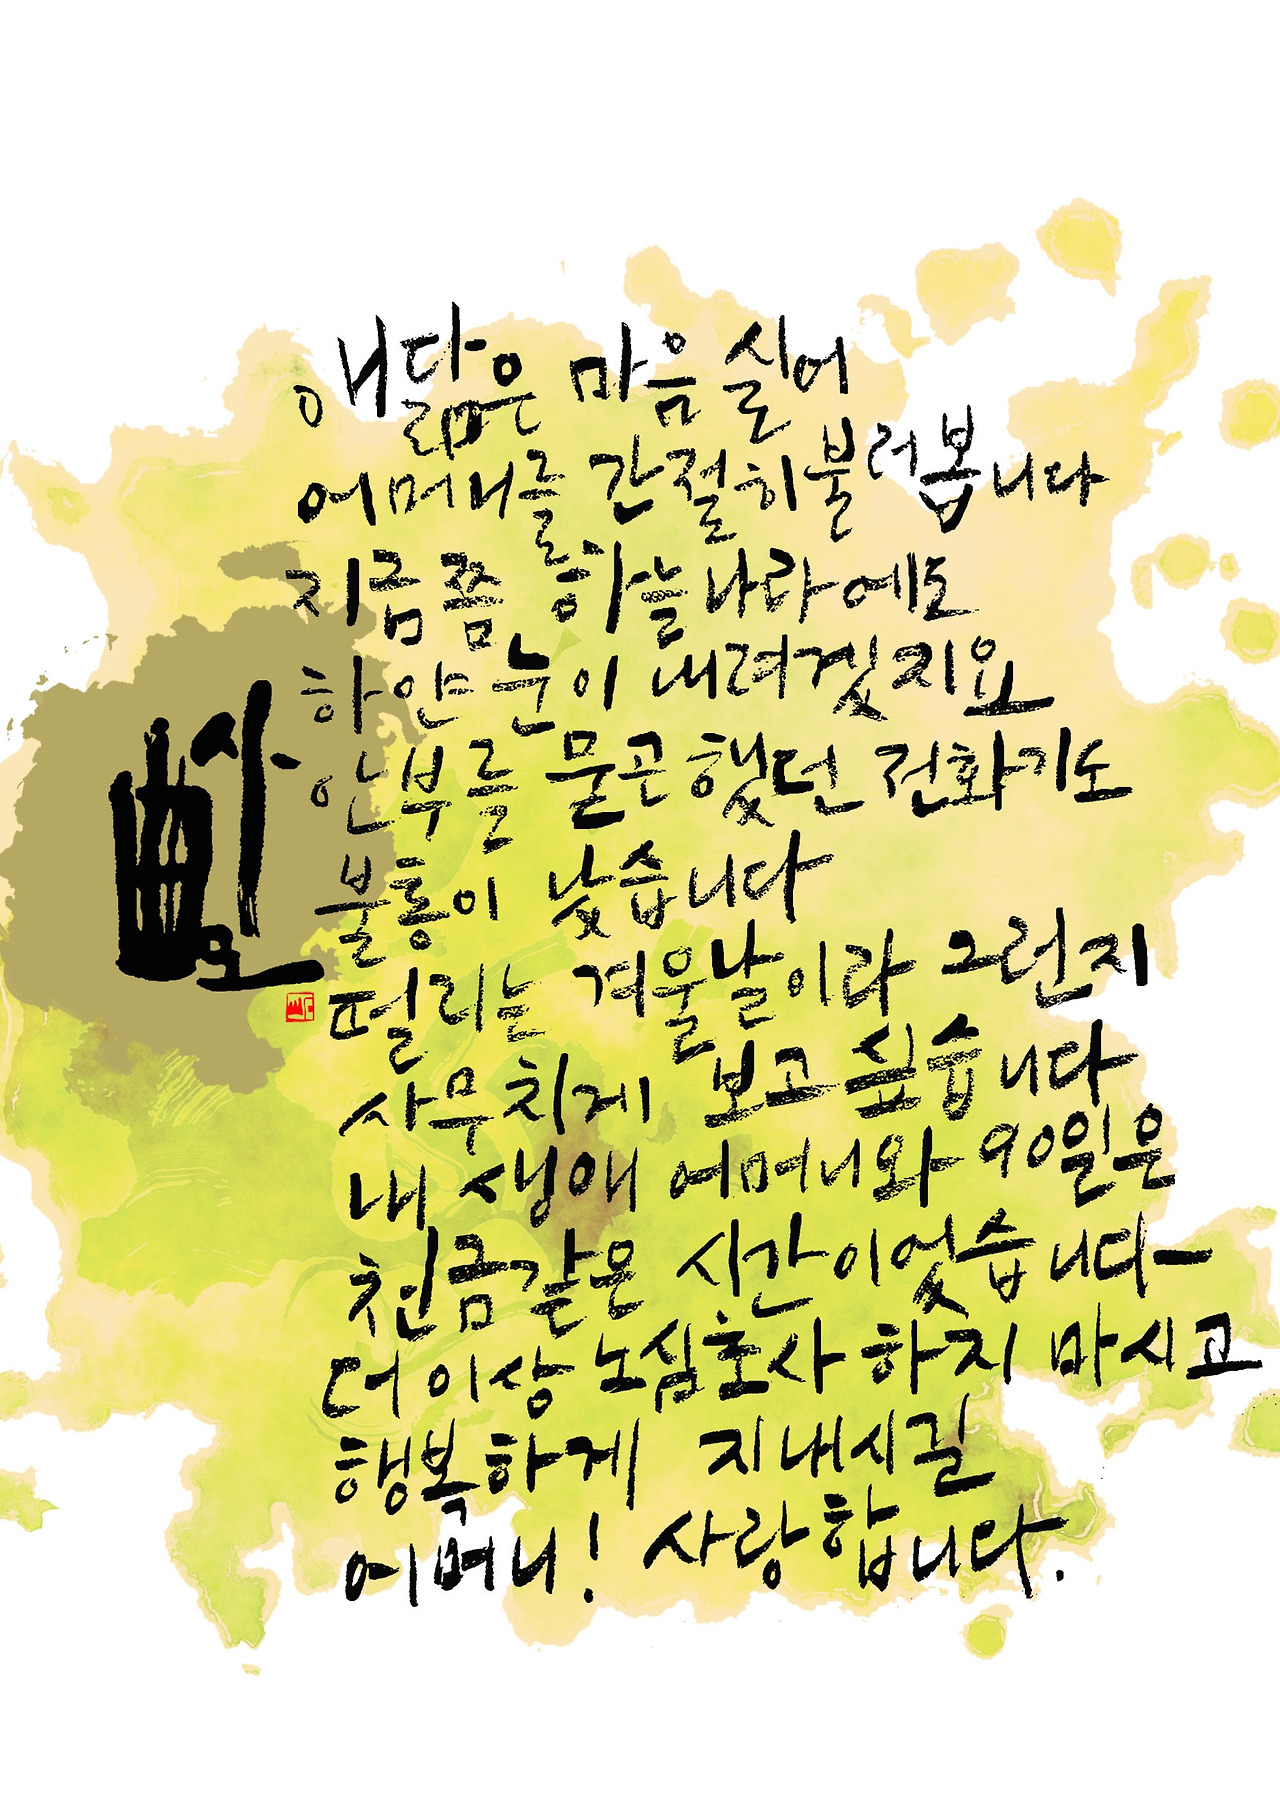 사모曲
애닮은 마음 실어
어머니를 간절히 불러 봅니다
지금쯤 하늘나라에도
하얀 눈이 내려겠지요
안부를 묻곤 했던 전화기도
불통이 났습니다
떨리는 겨울날이라 그런지
사무치게 보고 싶습니다
내 생애 어머니와 90일은
천금같은 시간이었습니다
더 이상 노심호사 하지 마시고
행복하게 지내시길
어머니! 사랑합니다.